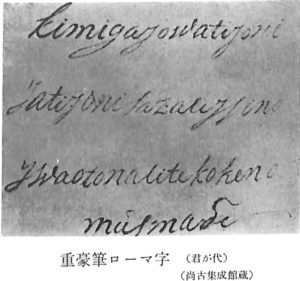 kimigayowatiyoni
Yatiyoni sazaleysino
Ywaotonalite kokeno
músmade
重豪筆ローマ字 (君が代)
(尚古集成館蔵)